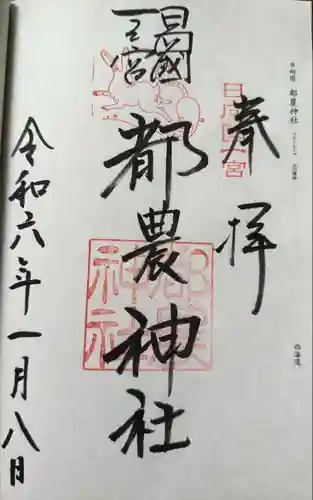 日向國 都農神社
奉拝
日向國一宮
日向國
一之宮
都農神社
都農神社
令和六年一月八日